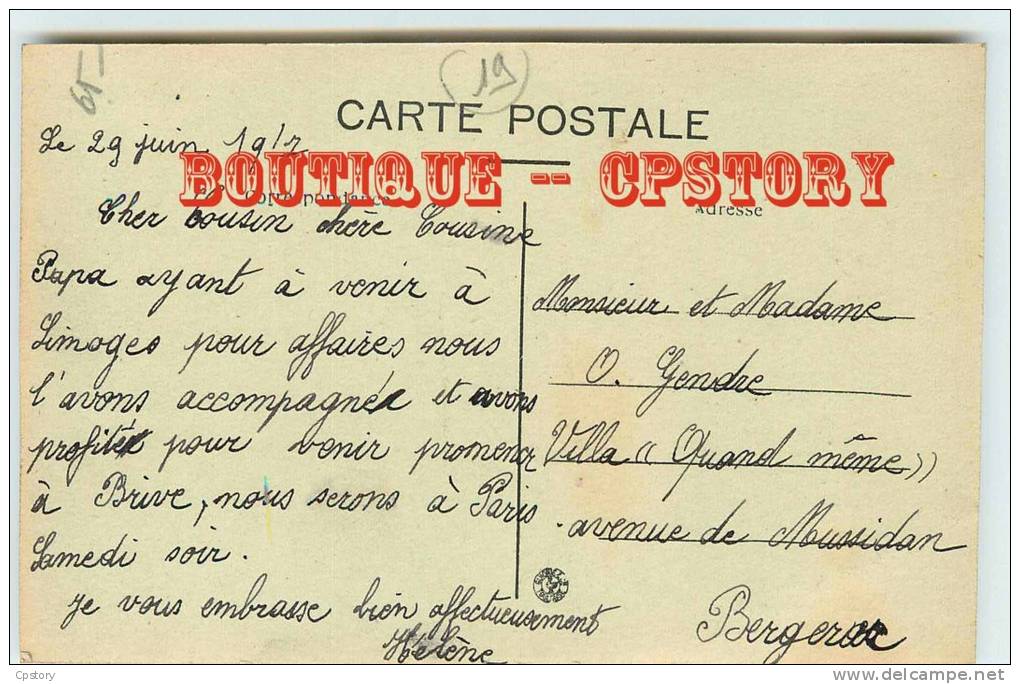 65
19
CARTE POSTALE
Le 29 juin 1917
BOUTIQUE -- CPSTORY
Correspondance
Adresse
Cher Cousin chère Cousine
Papa ayant à venir à
Limoges pour affaires nous
l'avons accompagné et avons
profité pour venir promener
à Brive, nous serons à Paris
Samedi soir.
Je vous embrasse bien affectueusement
Hélène
Monsieur et Madame
O. Gendre
Villa « Quand même »
avenue de Mussidan
Bergerac
Cpstory
www.delcampe.net